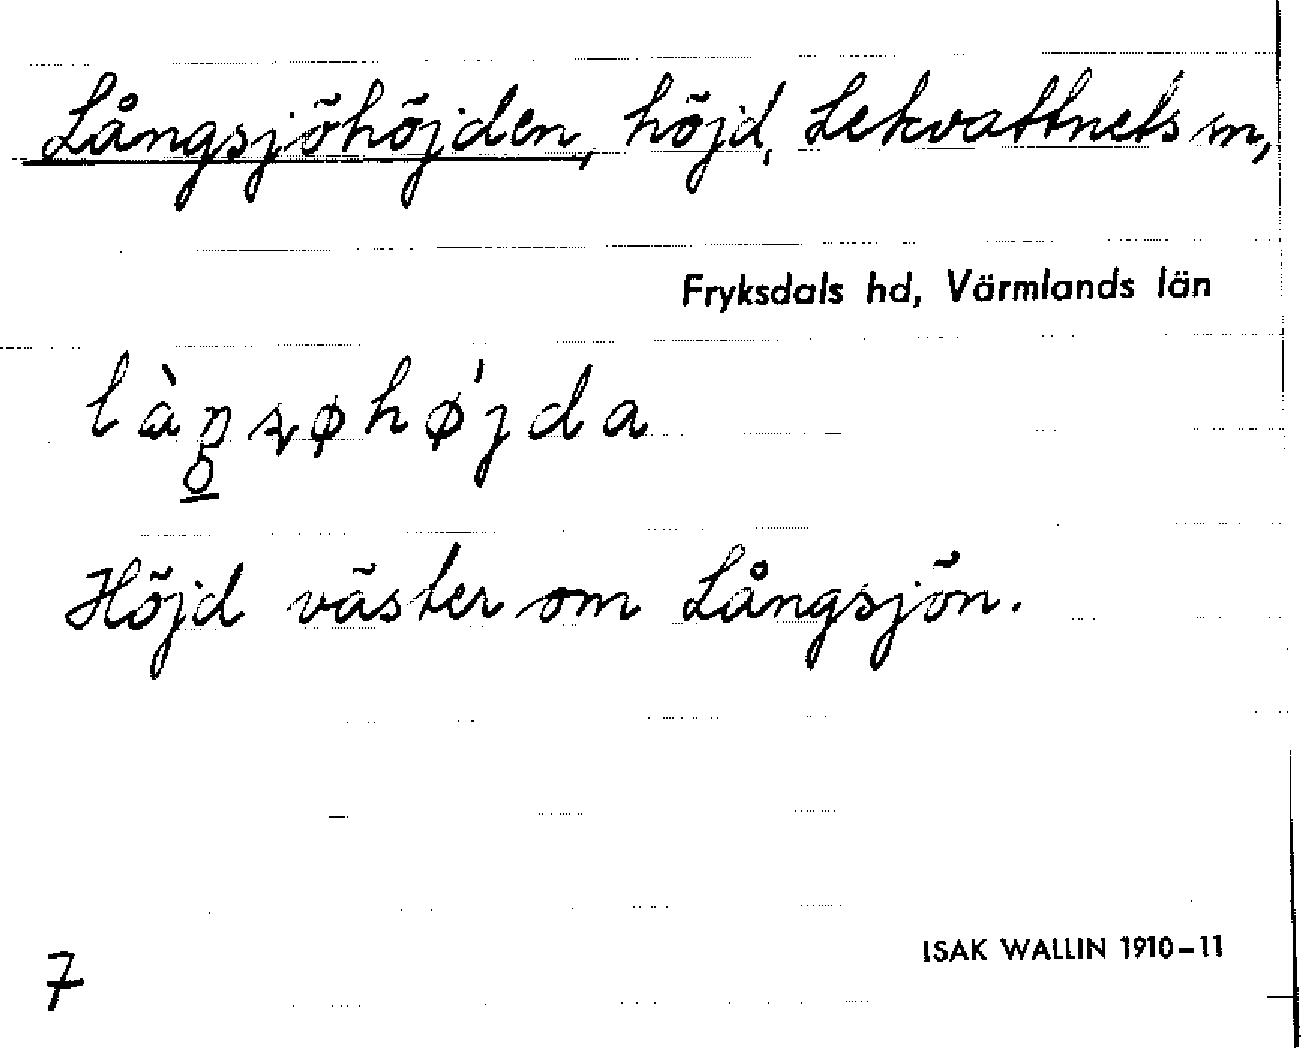 Långsjöhöjden, höjd, Lekvattnets sn,
Fryksdals hd, Värmlands län
Höjd väster om Långsjön.
7
ISAK WALLIN 1910–11